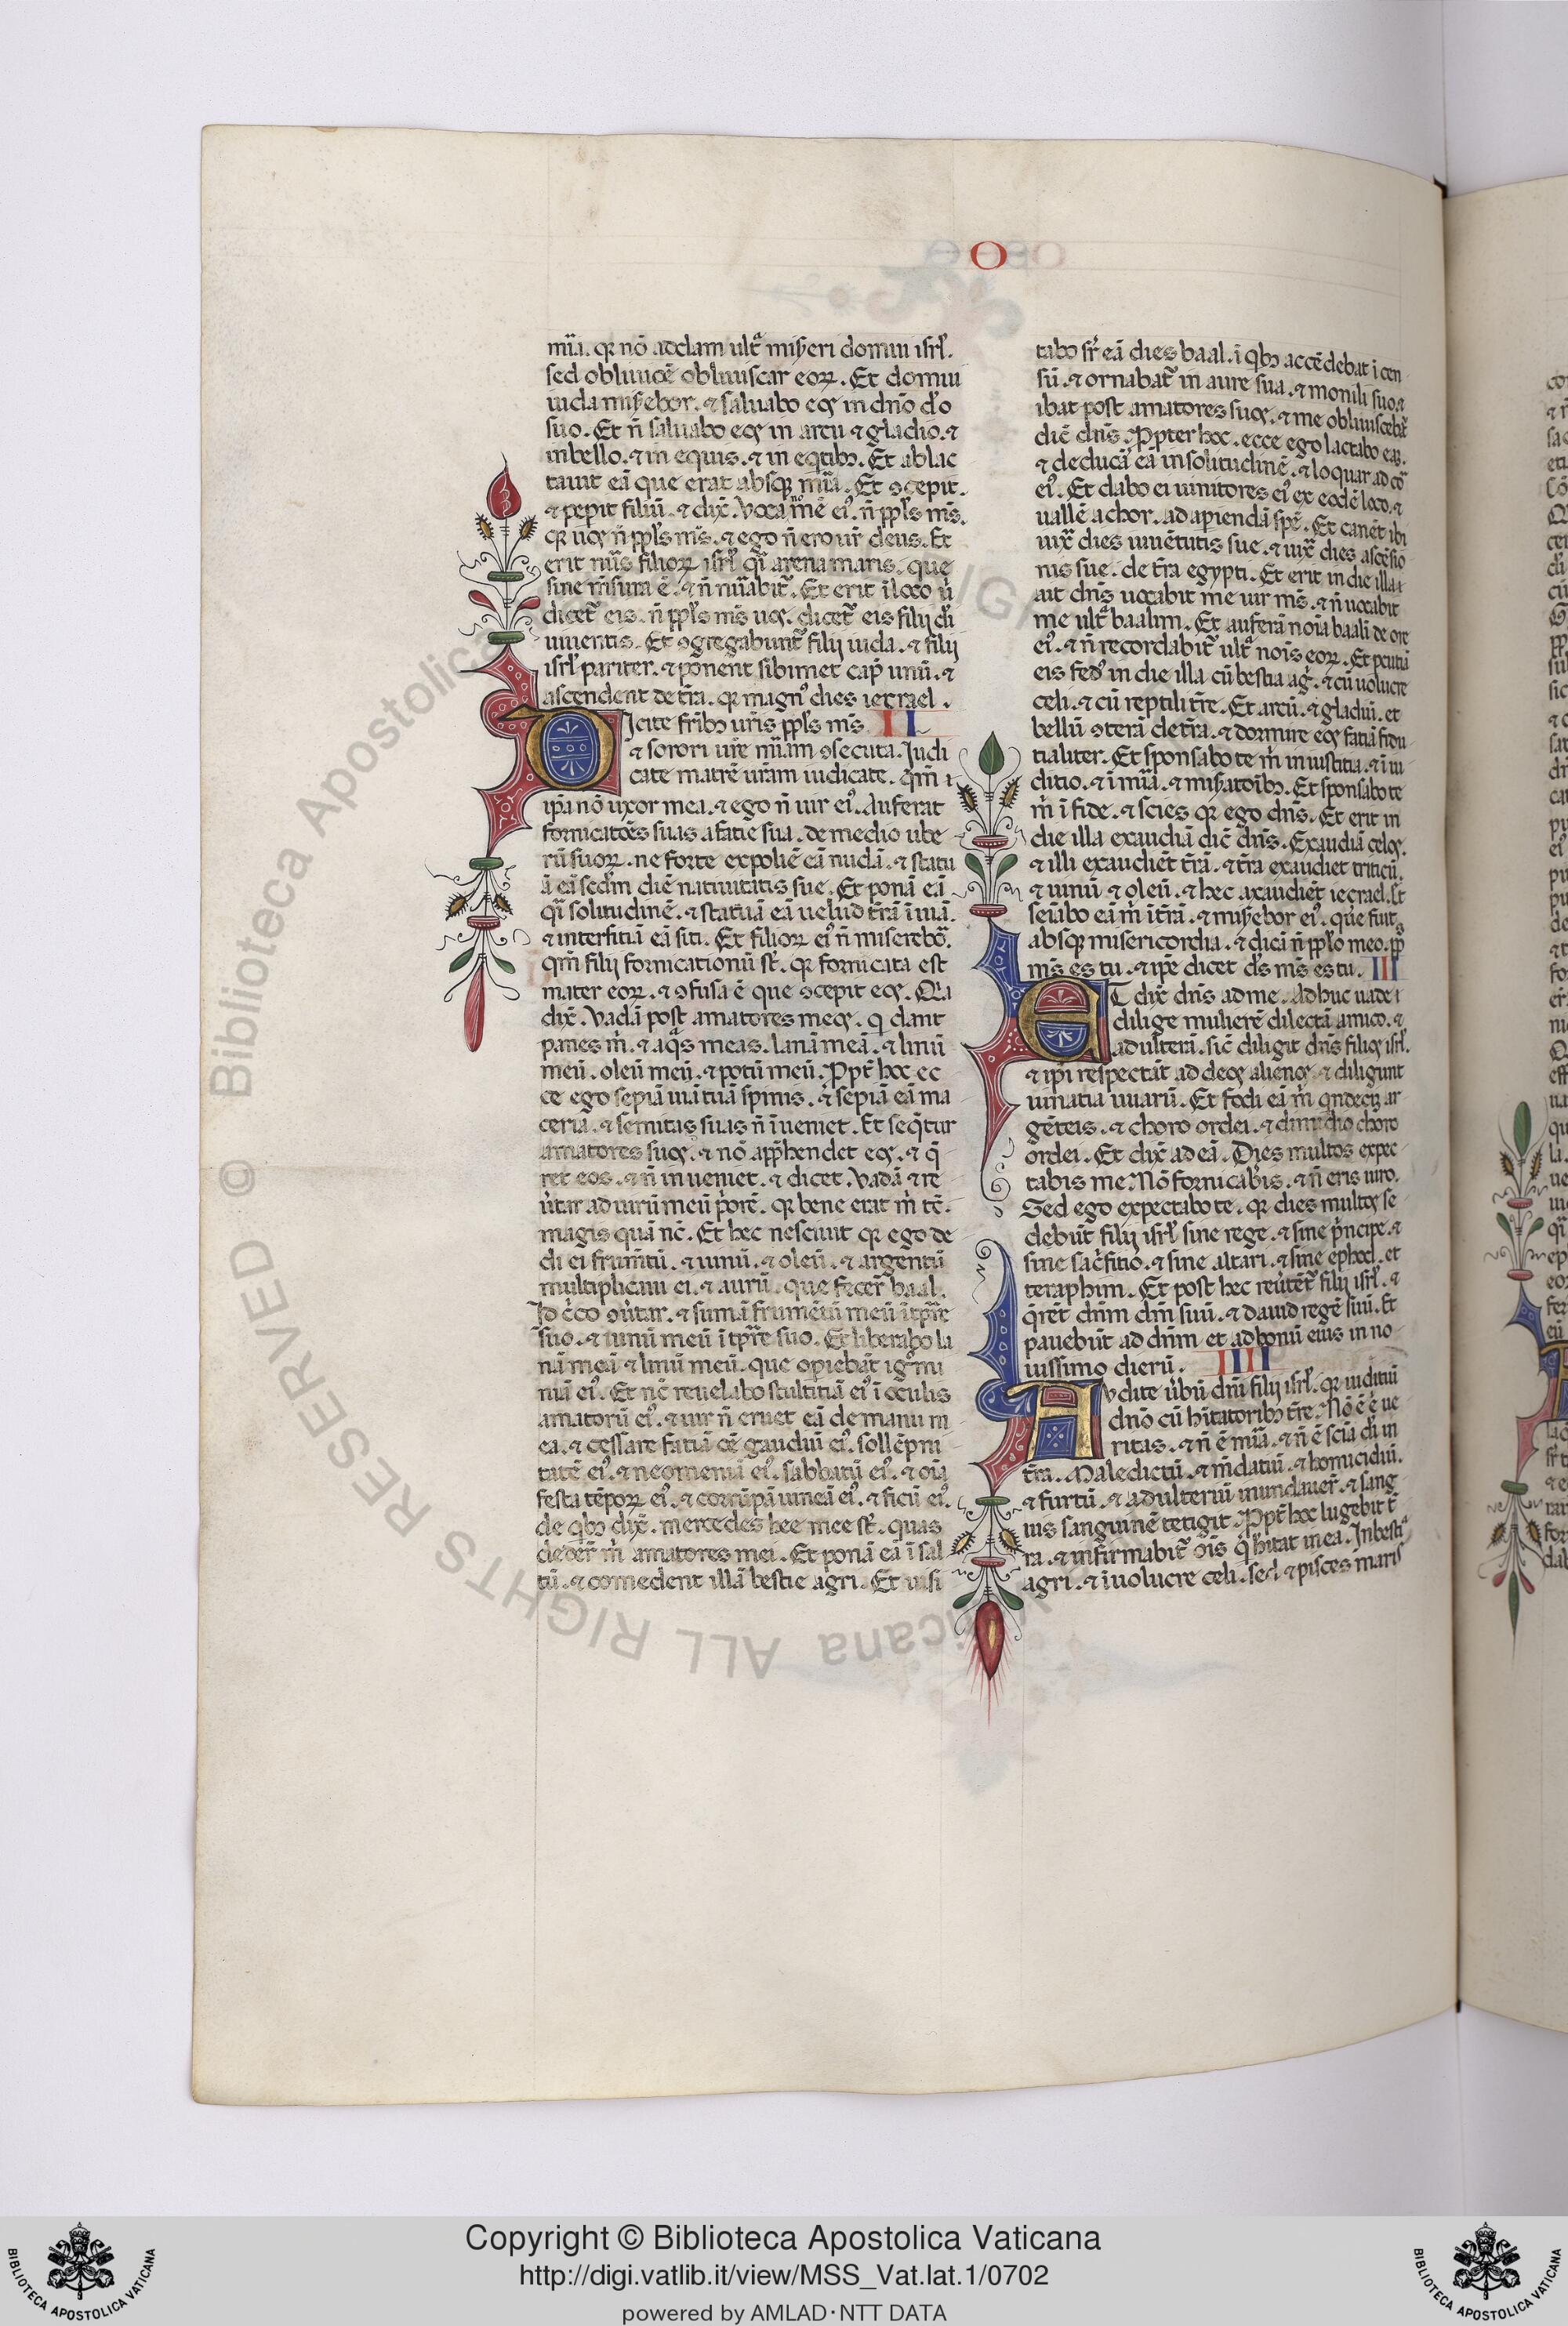 O
mīa. qꝛ nō addam ultᵃ misẏeri domui isrl̃.
sed obliuiōē obliuiscar eoꝝ. Et domui
iuda misẏebor. ⁊ saluabo eoꝯ in dño dō
suo. Et ñ saluabo eoꝯ in arcu ⁊ gladio. ⁊
in bello. ⁊ in equis. ⁊ in eqtibꝫ. Et ablac
tauit eā que erat absqꝫ mīa. Et ꝯcepit.
⁊ peperit filiū. ⁊ dix̃. Voca nomē eiꝰ. ñ ppl̃s mꝰs.
qꝛ uoꝯ ñ ppl̃s mꝰs. ⁊ ego ñ ero ur̃ deus. Et
erit nūs filioꝝ isrl̃ qͣi arena maris. que
sine m̃sura ē. ⁊ ñ nūabit᷑. Et erit ī loco ů
dicet᷑ eis. ñ ppl̃s mꝰs uoꝯ. dicet᷑ eis filij dī
uiuentis. Et ꝯgregabunt᷑ filij iuda. ⁊ filij
isrl̃ pariter. ⁊ ponent sibimet cap̃ unū. ⁊
ascendent de t̃ra. qꝛ magnꝰ dies iezrael.
Dicite fr̃ibꝫ ur̃is ppl̃s mꝰs. II
⁊ sorori ur̃e mīam ꝯsecuta. Iudi
cate matrē ur̃am iudicate. qm̃ i
ip̃a nō uxor mea. ⁊ ego ñ uir eiꝰ. Auferat
fornicatōēs suas a fatie sua. de medio ube
rū suoꝝ. ne forte expoliē eā nudā. ⁊ statu
ā eā sed̃m diē natiuitatis sue. Et ponā eā
qͣi solitudinē. ⁊ statuā eā uelud t̃rā īuiā.
⁊ interfitiā eā siti. Et filioꝝ eiꝰ ñ miserebor̃.
qm̃ filij fornicationū st̃. qꝛ fornicata est
mater eoꝝ. ⁊ ꝯfusa ē que ꝯcepit eoꝯ. Qͥa
dix̃. Vadā post amatores meoꝯ. qͥ dant
panes m̊. ⁊ aqͣs meas. lanā meā. ⁊ linū
meū. oleū meū. ⁊ potū meū. Ꝓpt̃ hoc ec
ce ego sepiā uiā tuā spinis. ⁊ sepiā eā ma
ceria. ⁊ semitas suas ñ īueniet. Et seqt̃ur
amatores suoꝯ. ⁊ nō app̃hendet eoꝯ. ⁊ q̃
ret eos. ⁊ ñ inueniet. ⁊ dicet. Vadā ⁊ re
ůtar ad uirū meū p̊orē. qꝛ bene erat m̊ tē.
magis quā nc̃. Et hec nesciuit qꝛ ego de
di ei frum̃tū. ⁊ uinū. ⁊ oleū. ⁊ argentū
multiplicaui ei. ⁊ aurū. que fecer̃ baal.
Id c̊co ꝯůtar. ⁊ sumā frumētū meū ī tp̃re
suo. ⁊ uinū meū ī tp̃re suo. Et liberabo la
nā meā ⁊ linū meū. que operiebāt ignomi
niā eiꝰ. Et nc̃ reuelabo stultitiā eiꝰ ī oculis
amatorū eiꝰ. ⁊ uir ñ eruet eā de manu m
ea. ⁊ cessare fatiā oē gaudiū eiꝰ. sollēpni
tatē eiꝰ. ⁊ neomeniā eiꝰ. sabbatū eiꝰ. ⁊ oīa
festa tēpoꝝ eiꝰ. ⁊ corrūpā uineā eiꝰ. ⁊ ficū eiꝰ.
de qͥbꝫ dix̃. mercedes hee mee st̃. quas
deder̃ m̊ amatores mei. Et ponā eā ī sal
tū. ⁊ comedent illā bestie agri. Et uisi
tabo sr̃ eā dies baal. ī qͥbꝫ accēdebat īcen
sū. ⁊ ornabat᷑ in aure sua. ⁊ monili suo. ⁊
ibat post amatores suoꝯ. ⁊ me obliuiscebat᷑
dic̃ dñs. Ꝓpter hoc. ecce ego lactabo eā.
⁊ ducā eā in solitudinē. ⁊ loquar ad cor̃
eiꝰ. Et dabo ei uinitores eiꝰ ex eodē loco. ⁊
uallē achor. ad apiendā spē. Et canēt ibi
iux̃ dies iuuētutis sue. ⁊ iux̃ dies ascēsio
nis sue. de t̃ra egypti. Et erit in die illa
ait dñs uocabit me uir mꝰs. ⁊ ñ uocabit
me ultᵃ baalim. Et auferā noīa baalī de ore
eiꝰ. ⁊ ñ recordabit᷑ ultᵃ noīs eoꝝ. Et pcutiā
eis fedꝰ in die illa cū bestia agͥ. ⁊ cū uolucre
celi. ⁊ cū reptili t̃re. Et arcū. ⁊ gladiū. et
bellū ꝯterā de t̃ra. ⁊ dormire eoꝯ fatiā fidu
tialiter. Et sponsabo te m̊ in iustitia. ⁊ ī iu
ditio. ⁊ ī mīa. ⁊ misẏatōībꝫ. Et sponsabo te
m̊ ī fide. ⁊ scies qꝛ ego dñs. Et erit in
die illa exaudiā dic̃ dñs. Exaudiā celoꝯ.
⁊ illi exaudiēt t̃rā. ⁊ t̃ra exaudiet triticū.
⁊ uinū ⁊ oleū. ⁊ hec axaudiēt iezrael. Et
seīabo eā m̊ ī t̃rā. ⁊ misẏebor eiꝰ. que fuit
absqꝫ misericordia. ⁊ dicā ñ ppl̃o meo. pp̃
mꝰs es tu. ⁊ ip̃e dicet dꝰs mꝰs es tu. III
ET dix̃ dñs ad me. Adhuc uade ⁊
dilige mulierē dilectā amico. ⁊
adulterā. sic̃ diligit dñs filioꝯ isrl̃.
⁊ ip̃i respectāt ad deoꝯ alienoꝯ ⁊ diligunt
uinatia uuarū. Et fodi eā m̊ qͥndecꝫ ar
gēteis. ⁊ choro ordei. ⁊ dimidio choro
ordei. Et dix̃ ad eā. Dies multos expec
tabis me. Nō fornicabis. ⁊ ñ eris uiro.
Sed ego expectabo te. qꝛ dies multoꝯ se
debūt filij isrl̃ sine rege. ⁊ sine pͥncipe. ⁊
sine sac̊fitio. ⁊ sine altari. ⁊ sine ephod. et
teraphim. Et post hec reůtēt᷑ filij isrl̃. ⁊
q̃rēt dñm dm̃ suū. ⁊ dauid regē suū. Et
pauebūt ad dñm et ad bonū eius in no
uissimo dierū. IIII
Audite ůbū dñi filij isrl̃. qꝛ iuditiū
dño cū hītatoribꝫ t̃re. Nō ē ē ue
ritas. ⁊ ñ ē mīa. ⁊ ñ ē scīa dī in
t̃ra. Maledictū. ⁊ m̃datiū. ⁊ homicidiū.
⁊ furtū. ⁊ adulteriū inundauer̃. ⁊ sang
uis sanguinē tetigit. Ꝓpt̃ hoc lugebit t̃
ra. ⁊ infirmabit᷑ oīs qͥ hītat in ea. In bestia
agri. ⁊ ī uolucre celi. sed ⁊ pisces maris
Copyright © Biblioteca Apostolica Vaticana
http://digi.vatlib.it/view/MSS_Vat.lat.1/0702
powered by AMLAD·NTT DATA
BIBLIOTECA APOSTOLICA VATICANA
BIBLIOTECA APOSTOLICA VATICANA
© Biblioteca Apostolica Vaticana ALL RIGHTS RESERVED